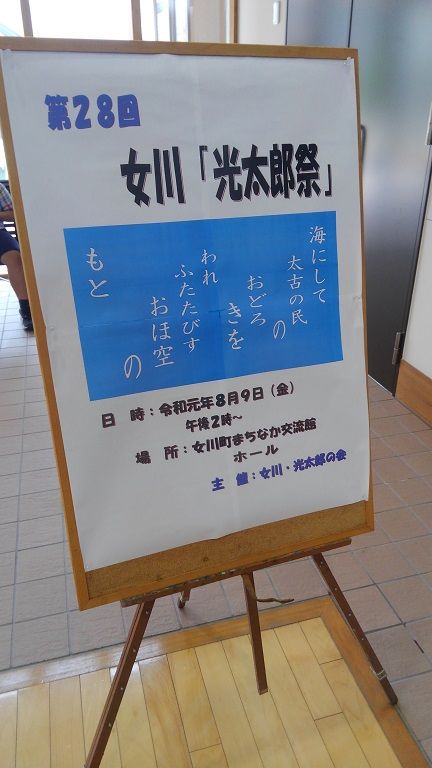 第28回
女川「光太郎祭」
海にして
太古の民の
おどろきを
われ
ふたたびす
おほ空の
もと
日　時：令和元年8月9日（金）
午後2時～
場　所：女川町まちなか交流館
ホール
主　催：女川・光太郎の会